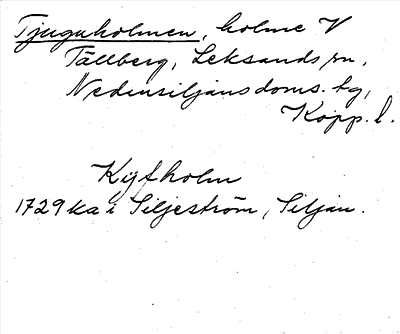 Tjuguholmen, holme V
Tällberg, Leksands sn,
Nedansiljans doms. tg,
Kopp. l.
Kyfholm
1729 ka i Siljeström, Siljan.